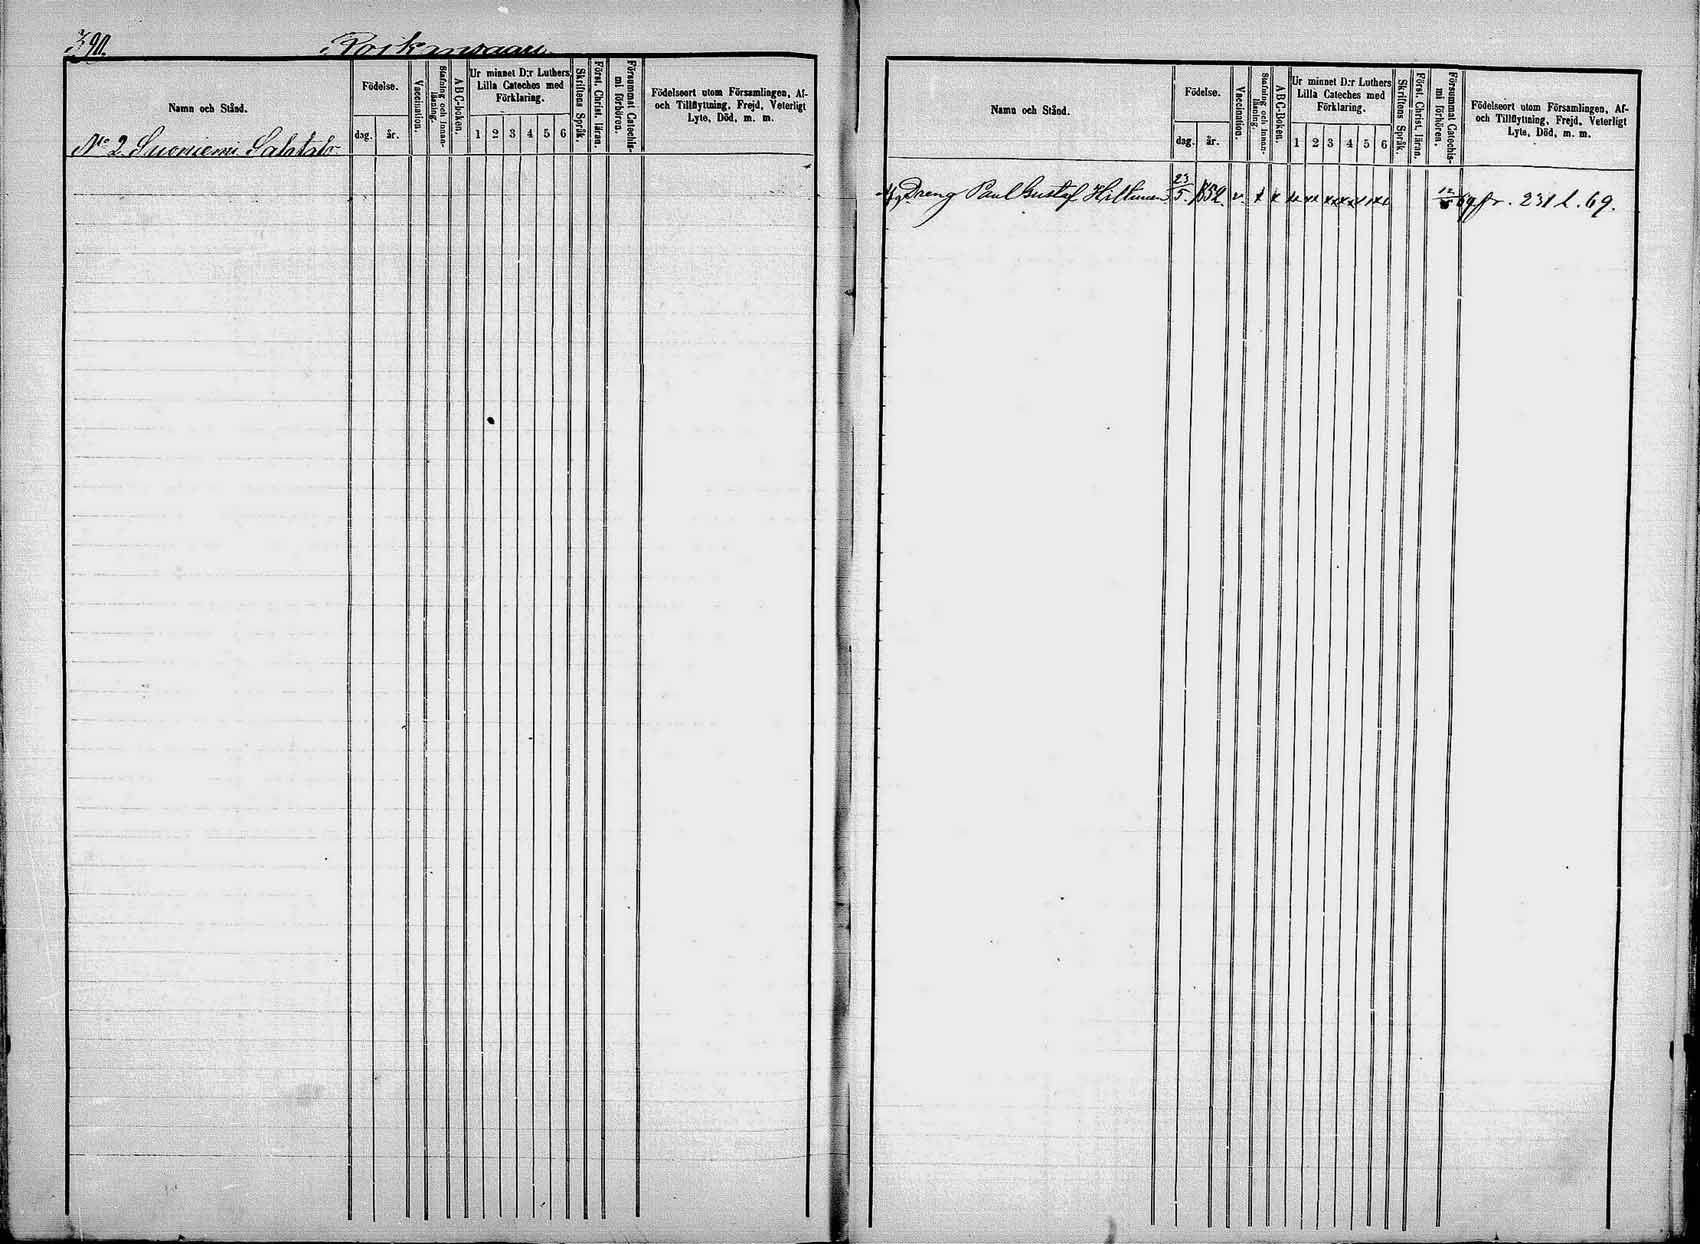 390.
Poikansaari
Namn och Stånd.
Födelse.
dag.
år.
Vaccination.
Stafning och Innan-
läsning.
ABC-boken.
Ur minnet D:r Luthers
Lilla Cateches med
Förklaring.
1 2 3 4 5 6
Skriftens Språk.
Först. Christ. läran.
Försummat Catechis-
mi förhören.
Födelseort utom Församlingen, Af-
och Tillflyttning, Frejd, Veterligt
Lyte, Död, m. m.
No 2 Suoniemi
Namn och Stånd.
Födelse.
dag.
år.
Vaccination.
Stafning och Innan-
läsning.
ABC-Boken.
Ur minnet D:r Luthers
Lilla Cateches med
Förklaring.
1 2 3 4 5 6
Skriftens Språk.
Först. Christ. läran.
Försummat Catechis-
mi förhören.
Födelseort utom Församlingen, Af-
och Tillflyttning, Frejd, Veterligt
Lyte, Död, m. m.
Dreng Paul Gustaf Hiltunen 23/5 1852. v. x x 69 fr. 231 l. 69.